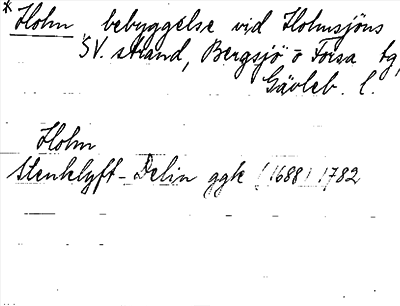 * Holm, bebyggelse vid Holmsjöns
SV. strand, Bergsjö o Forsa tg,
Gävleb. l.
Holm
Stenklyft-Delin ggk (1688) 1782